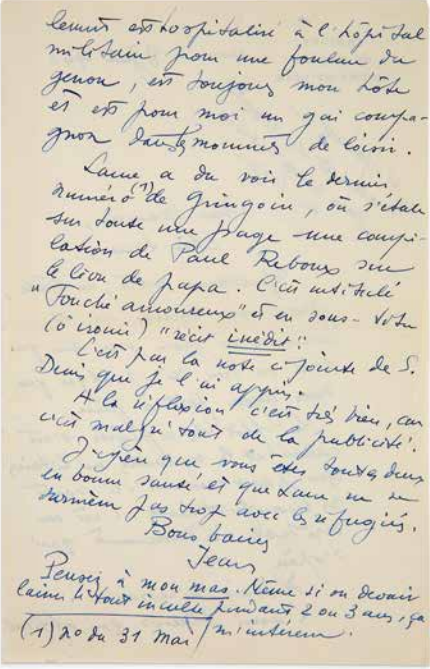 lequel est hospitalisé à l'hôpital
militaire pour une foulure du
genou, est toujours mon hôte
et est pour moi un gai compa-
gnon dans les moments de loisir.
a du voir le dernier
numéro (1) de Gringoire, où s'étale
sur toute une page une compi-
lation de Paul Reboux sur
le livre de papa. C'est intitulé
"Fouché amoureux" et en sous-titre
(ô ironie) "récit inédit".
C'est par la note ci-jointe de S.
Denis que je l'ai appris.
A la réflexion c'est très bien, car
c'est malgré tout de la publicité.
J'espère que vous êtes toutes deux
en bonne santé et que ne se
surmène pas trop avec les réfugiés.
Bons baisers
Jean
Pensez à mon mas. Même si on devait
laisser le tout inculte pendant 2 ou 3 ans, ça
m'intéresse.
(1) no du 31 Mai